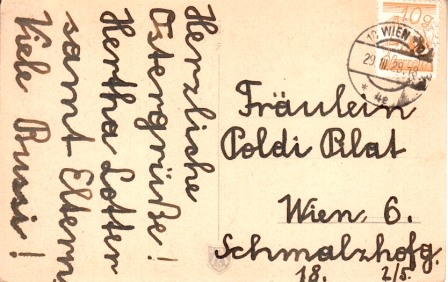 Herzliche
Ostergrüße!
Hertha Lotter
samt Eltern.
Viele Bussi!
10g
WIEN
29.III.29.
* 4e *
Fräulein
Poldi Pilat
Wien 6.
Schmalzhofg.
18. 2/5.